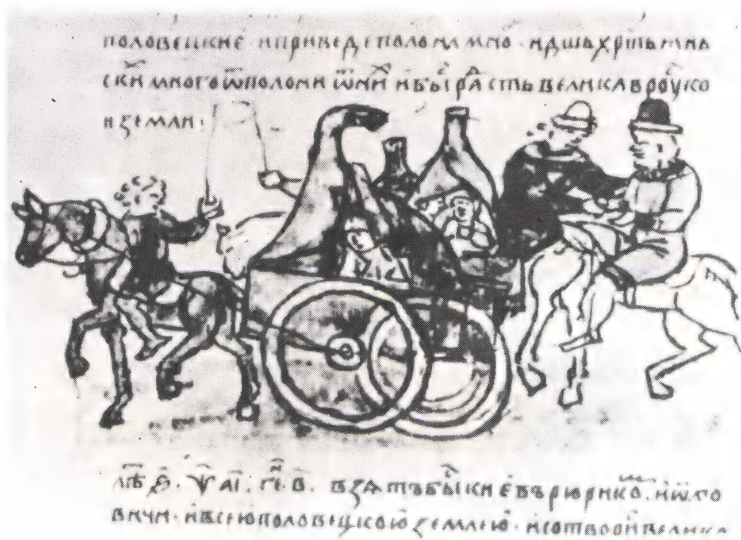 половецкиє и приведе полона мно · и дшь хрⷭ҇тьꙗнь
скиⷯ много ѿполони ѿ ниⷯ и быⷭ҇ раⷣсть велика в роуско
и земли :
взѧтъ быⷭ҇ киевъ рюрикоⷨ · и ѡлго
вичи · и всею половецкою землею · и сотвори велика